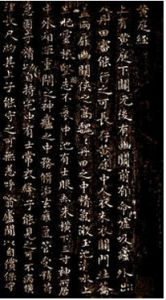 黄庭經
上有黄庭下有關元後有幽闕前有命門噓吸廬外出
入丹田審能行之可長存黄庭中人衣朱衣關門壯籥
蓋兩扉幽闕俠之高魏魏丹田之中精氣微玉池清水上
生肥靈根堅志不衰中池有士服赤朱横下三寸神所居
中外相距重閉之神廬之中務脩治玄廱氣管受精符
急固子精以自持宅中有士常衣絳子能見之可不病横
理長尺約其上子能守之可無恙呼噏廬間以自償保守